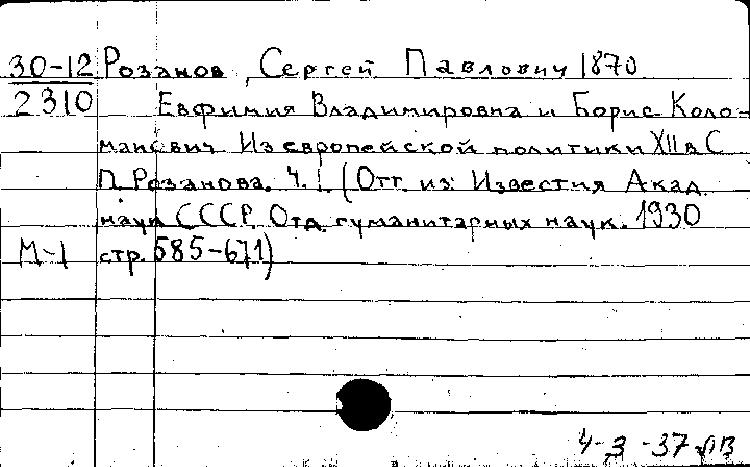 30-12 Розанов, Сергей Павлович 1870
2310 Евфимия Владимировна и Борис Коло-
манович Из европейской политики XII в С
П. Розанова. Ч. I (Отт. из: Известия Акад.
наук СССР, Отд. гуманитарных наук. 1930
М-1 стр. 585-671)
4-3-37